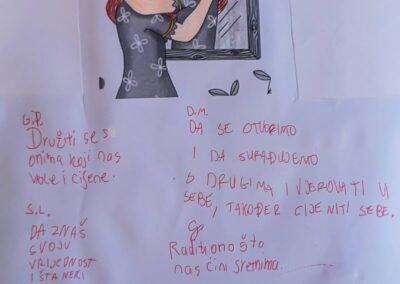 G.P.
Družiti se s
onima koji nas
vole i cijene.
S.L.
DA ZNAŠ
SVOJU
VRIJEDNOST
I ŠTA NEKI
D.M.
DA SE OTVORIMO
I DA SURAĐUJEMO
S DRUGIMA I VJEROVATI U
SEBE, TAKOĐER CIJENITI SEBE.
Raditi ono što
nas čini sretnima.